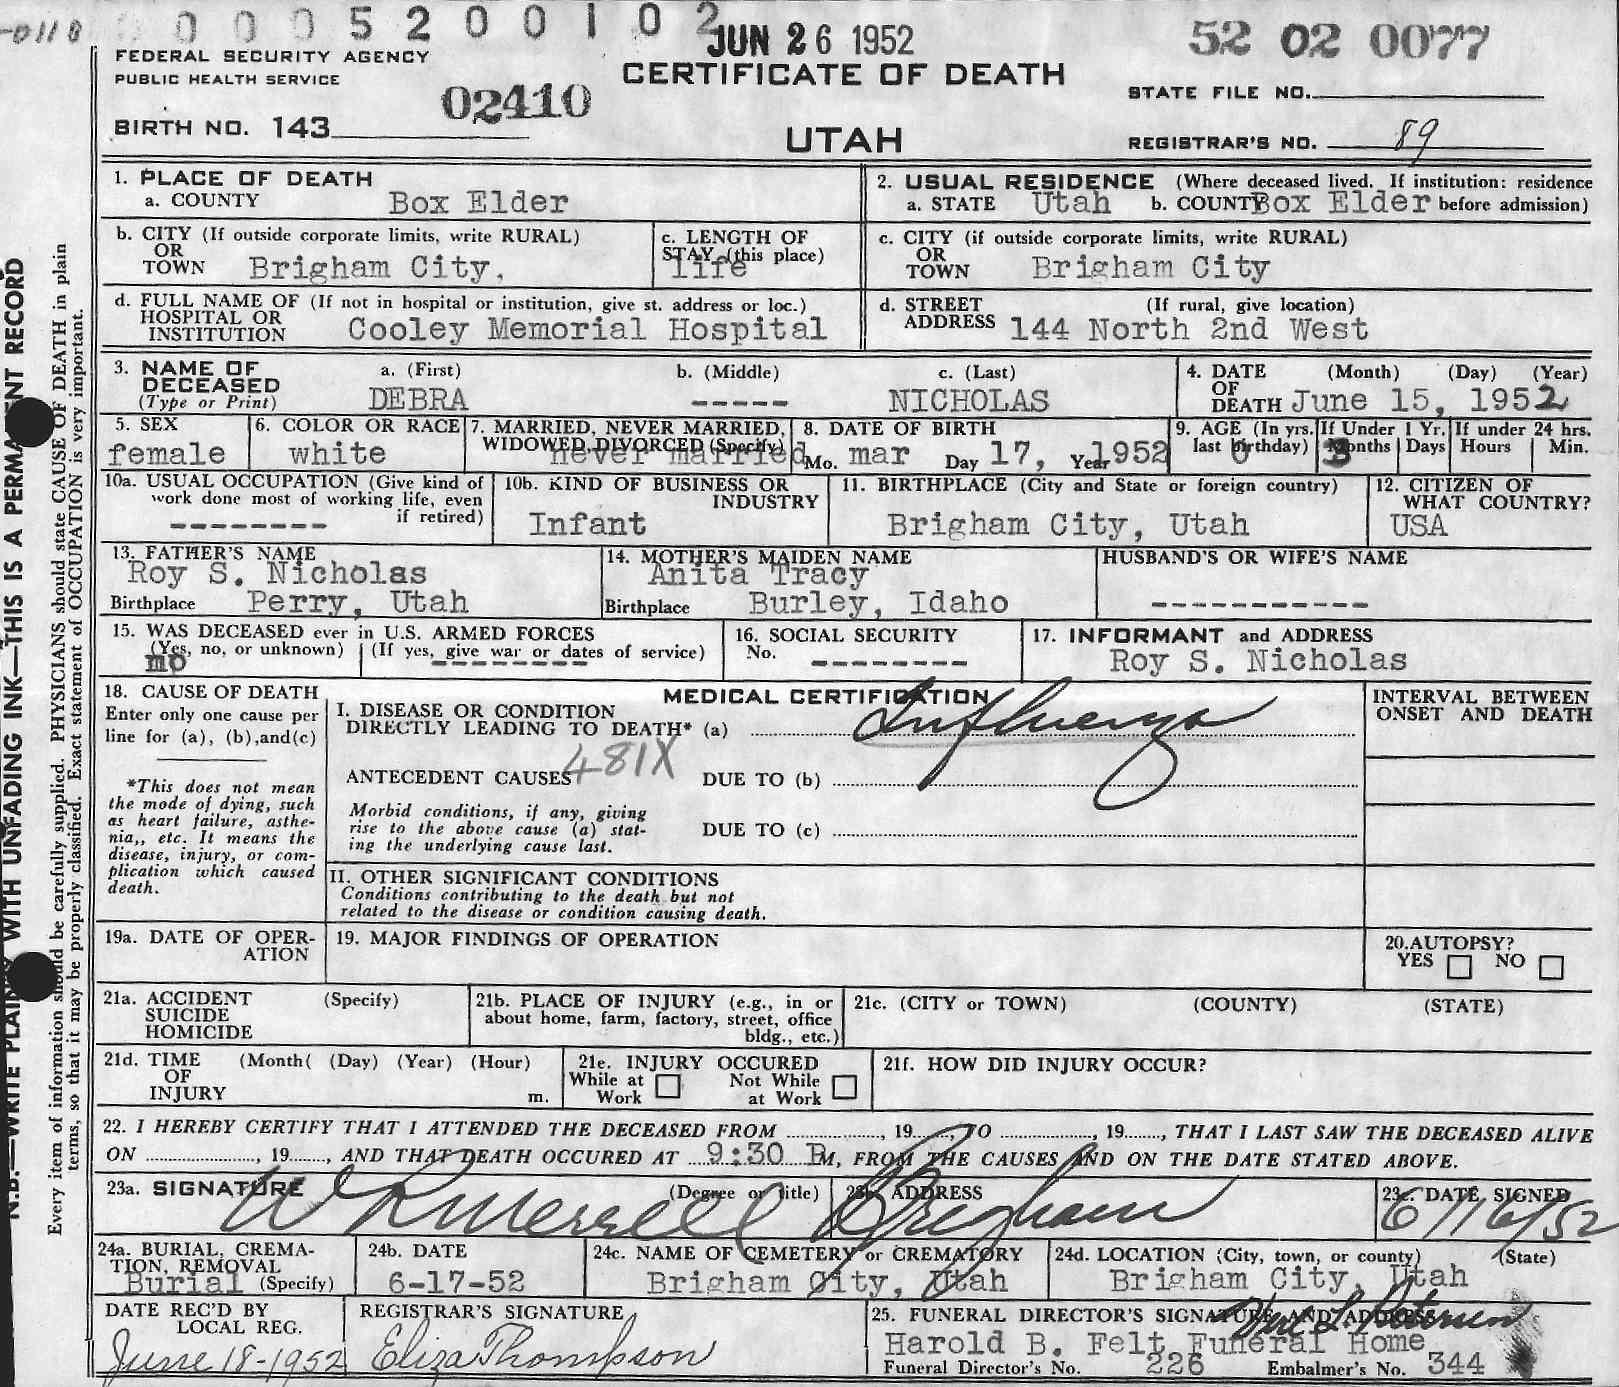 -0118 0 0 0 5 2 0 0 1 0 2
JUN 26 1952
52 02 0077
FEDERAL SECURITY AGENCY
PUBLIC HEALTH SERVICE
CERTIFICATE OF DEATH
STATE FILE NO.
02410
BIRTH NO. 143
UTAH
REGISTRAR'S NO. 89
1. PLACE OF DEATH
a. COUNTY Box Elder
2. USUAL RESIDENCE (Where deceased lived. If institution: residence
a. STATE Utah b. COUNTY Box Elder before admission)
b. CITY (If outside corporate limits, write RURAL)
OR
TOWN Brigham City,
c. LENGTH OF
STAY (this place)
life
c. CITY (if outside corporate limits, write RURAL)
OR
TOWN Brigham City
d. FULL NAME OF (If not in hospital or institution, give st. address or loc.)
HOSPITAL OR
INSTITUTION Cooley Memorial Hospital
d. STREET (If rural, give location)
ADDRESS 144 North 2nd West
3. NAME OF DECEASED
(Type or Print)
a. (First) b. (Middle) c. (Last)
DEBRA ----- NICHOLAS
4. DATE (Month) (Day) (Year)
OF
DEATH June 15, 1952
5. SEX
female
6. COLOR OR RACE
white
7. MARRIED, NEVER MARRIED,
WIDOWED, DIVORCED (Specify)
never married
8. DATE OF BIRTH
Mo. mar Day 17, Year 1952
9. AGE (In yrs. last birthday) 0
If Under 1 Yr.
Months 3 Days
If under 24 hrs.
Hours Min.
10a. USUAL OCCUPATION (Give kind of
work done most of working life, even
if retired)
--------
10b. KIND OF BUSINESS OR
INDUSTRY
Infant
11. BIRTHPLACE (City and State or foreign country)
Brigham City, Utah
12. CITIZEN OF
WHAT COUNTRY?
USA
13. FATHER'S NAME
Roy S. Nicholas
Birthplace Perry, Utah
14. MOTHER'S MAIDEN NAME
Anita Tracy
Birthplace Burley, Idaho
HUSBAND'S OR WIFE'S NAME
-----------
15. WAS DECEASED ever in U.S. ARMED FORCES
(Yes, no, or unknown) (If yes, give war or dates of service)
mo --------
16. SOCIAL SECURITY
No. --------
17. INFORMANT and ADDRESS
Roy S. Nicholas
18. CAUSE OF DEATH
Enter only one cause per
line for (a), (b),and(c)
*This does not mean
the mode of dying, such
as heart failure, asthe-
nia,, etc. It means the
disease, injury, or com-
plication which caused
death.
MEDICAL CERTIFICATION
I. DISEASE OR CONDITION
DIRECTLY LEADING TO DEATH* (a) Influenza
481X
ANTECEDENT CAUSES DUE TO (b)
Morbid conditions, if any, giving
rise to the above cause (a) stat-
ing the underlying cause last.
DUE TO (c)
II. OTHER SIGNIFICANT CONDITIONS
Conditions contributing to the death but not
related to the disease or condition causing death.
INTERVAL BETWEEN
ONSET AND DEATH
19a. DATE OF OPER-
ATION
19. MAJOR FINDINGS OF OPERATION
20.AUTOPSY?
YES NO
21a. ACCIDENT (Specify)
SUICIDE
HOMICIDE
21b. PLACE OF INJURY (e.g., in or
about home, farm, factory, street, office
bldg., etc.)
21c. (CITY or TOWN) (COUNTY) (STATE)
21d. TIME (Month( (Day) (Year) (Hour)
OF
INJURY m.
21e. INJURY OCCURED
While at Work Not While at Work
21f. HOW DID INJURY OCCUR?
22. I HEREBY CERTIFY THAT I ATTENDED THE DECEASED FROM , 19 , TO , 19 , THAT I LAST SAW THE DECEASED ALIVE
ON , 19 , AND THAT DEATH OCCURED AT 9:30 P M, FROM THE CAUSES AND ON THE DATE STATED ABOVE.
23a. SIGNATURE (Degree or title)
W R Merrell
23b. ADDRESS
Brigham
23c. DATE SIGNED
6/16/52
24a. BURIAL, CREMA-
TION, REMOVAL
Burial (Specify)
24b. DATE
6-17-52
24c. NAME OF CEMETERY or CREMATORY
Brigham City, Utah
24d. LOCATION (City, town, or county) (State)
Brigham City, Utah
DATE REC'D BY
LOCAL REG.
June 18-1952
REGISTRAR'S SIGNATURE
Eliza Thompson
25. FUNERAL DIRECTOR'S SIGNATURE AND ADDRESS
Harold B. Felt Funeral Home
Funeral Director's No. 226 Embalmer's No. 344
N.B.—WRITE PLAINLY WITH UNFADING INK—THIS IS A PERMANENT RECORD
Every item of information should be carefully supplied. PHYSICIANS should state CAUSE OF DEATH in plain
terms, so that it may be properly classified. Exact statement of OCCUPATION is very important.